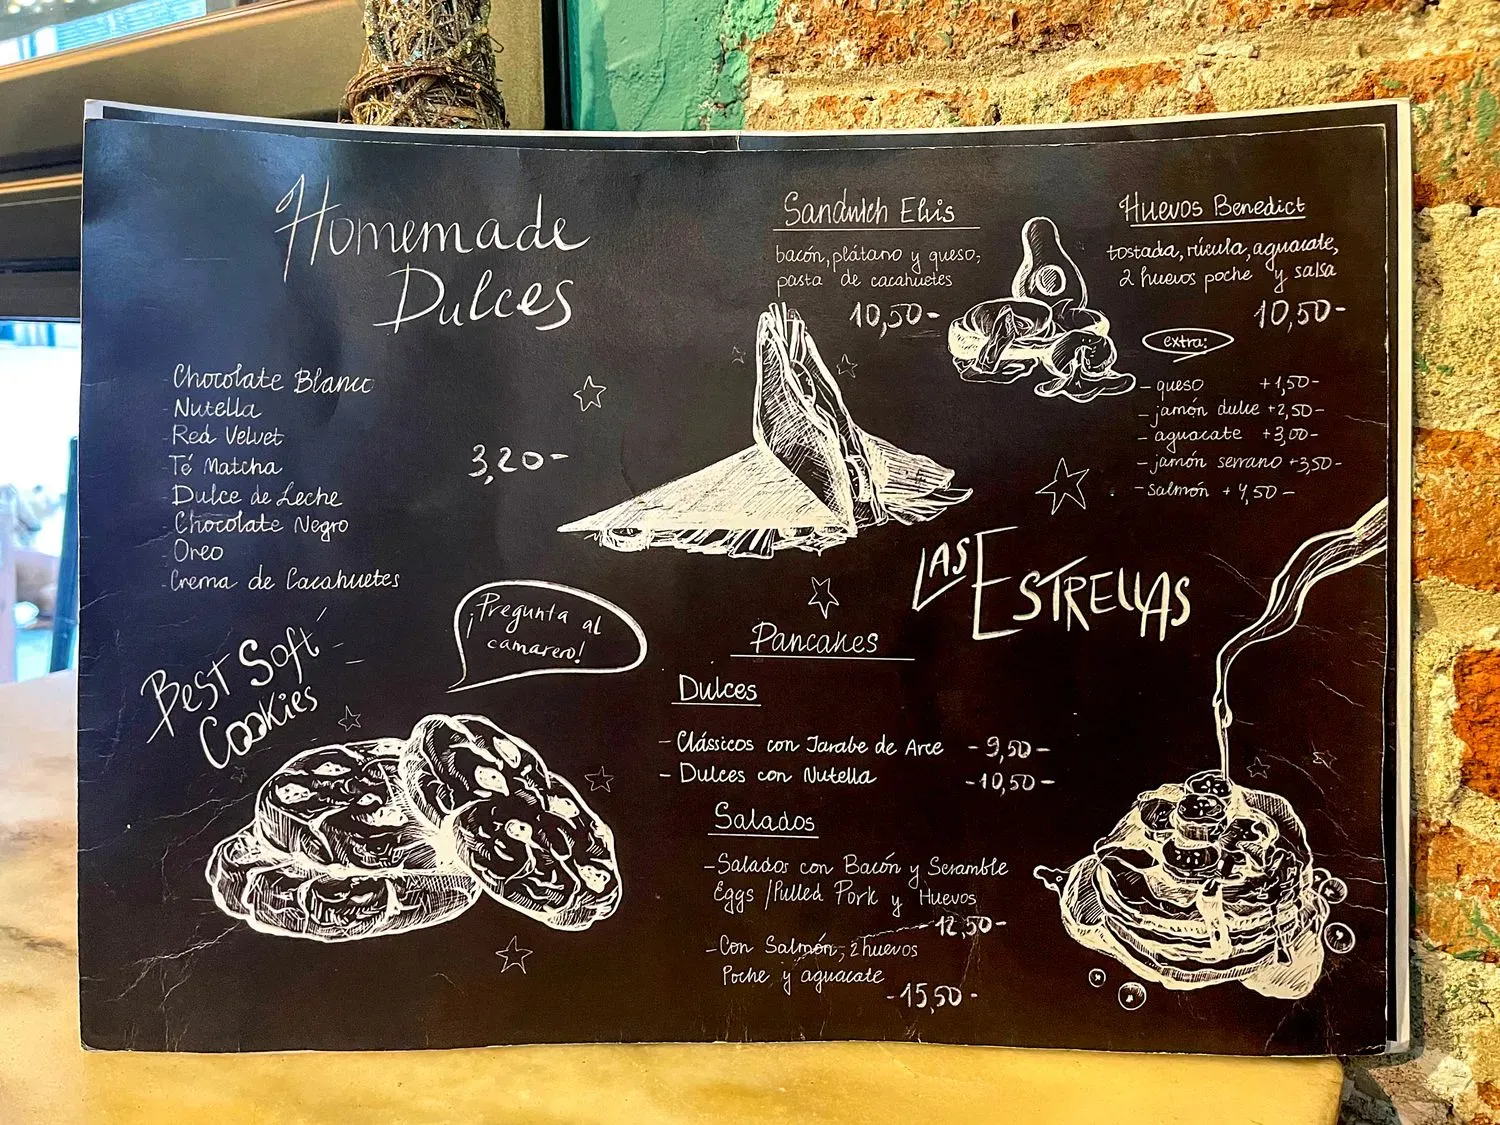 Homemade
Dulces
Chocolate Blanco
Nutella
Red Velvet
Té Matcha
Dulce de Leche
Chocolate Negro
Oreo
Crema de Cacahuetes
3,20-
¡Pregunta al
camarero!
Best Soft
Cookies
Sandwich Elvis
bacón, plátano y queso,
pasta de cacahuetes
10,50-
Huevos Benedict
tostada, rúcula, aguacate,
2 huevos poche y salsa
10,50-
extra:
- queso +1,50-
- jamón dulce +2,50-
- aguacate +3,00-
- jamón serrano +3,50-
- salmón + 4,50-
Las Estrellas
Pancakes
Dulces
- Clássicos con Jarabe de Arce - 9,50-
- Dulces con Nutella -10,50-
Salados
- Salados con Bacón y Scramble
Eggs /Pulled Pork y Huevos
-12,50-
- Con Salmón, 2 huevos
Poche y aguacate
-15,50-